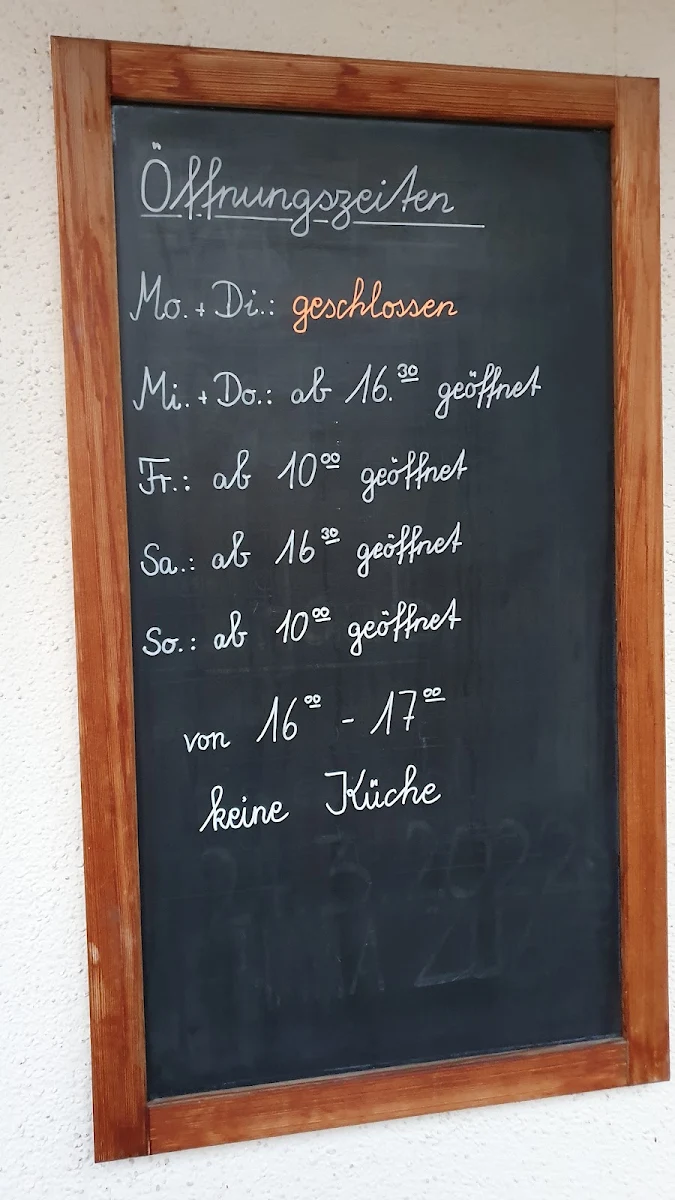 Öffnungszeiten
Mo. + Di.: geschlossen
Mi. + Do.: ab 16.30 geöffnet
Fr.: ab 10 00 geöffnet
Sa.: ab 16 30 geöffnet
So.: ab 10 00 geöffnet
von 16 00 - 17 00
keine Küche